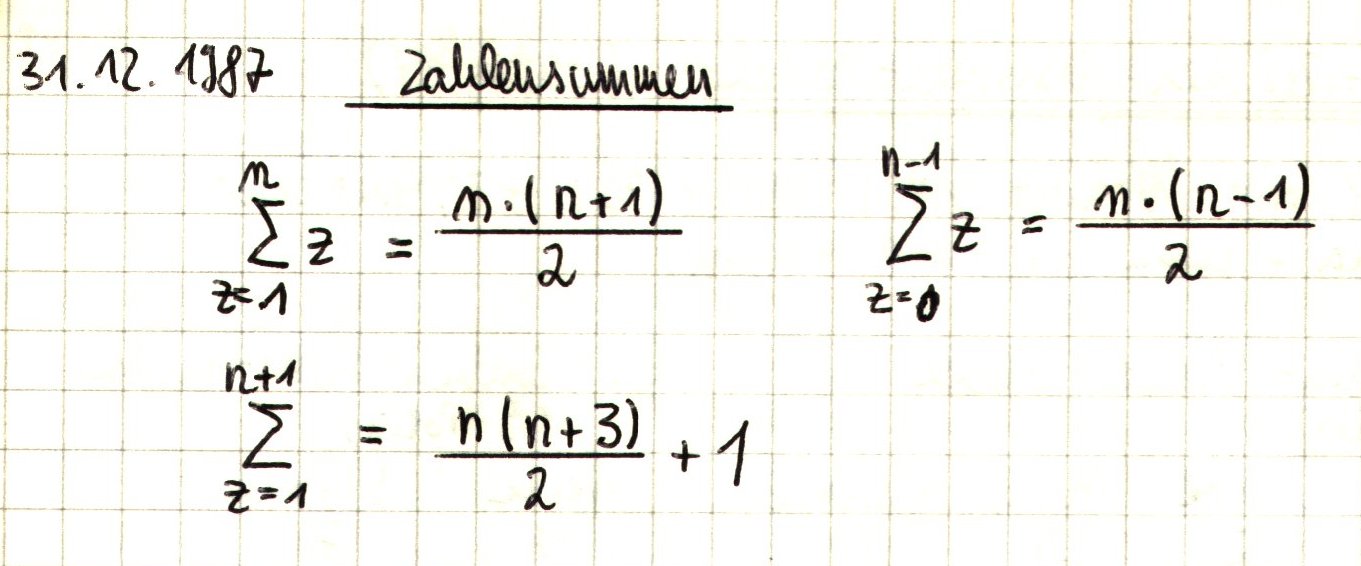 31.12.1987 Zahlensummen
n∑z=1 z = n·(n+1)/2
n-1∑z=0 z = n·(n-1)/2
n+1∑z=1 = n(n+3)/2 + 1